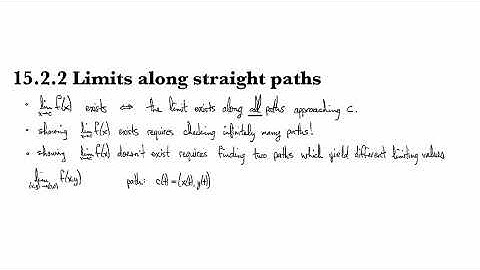 15.2.2 Limits along straight paths
• lim x→c f(x) exists ⇔ the limit exists along all paths approaching c.
• showing lim x→c f(x) exists requires checking infinitely many paths!
• showing lim x→c f(x) doesn't exist requires finding two paths which yield different limiting values
lim f(x,y) path: c(t) = (x(t), y(t))